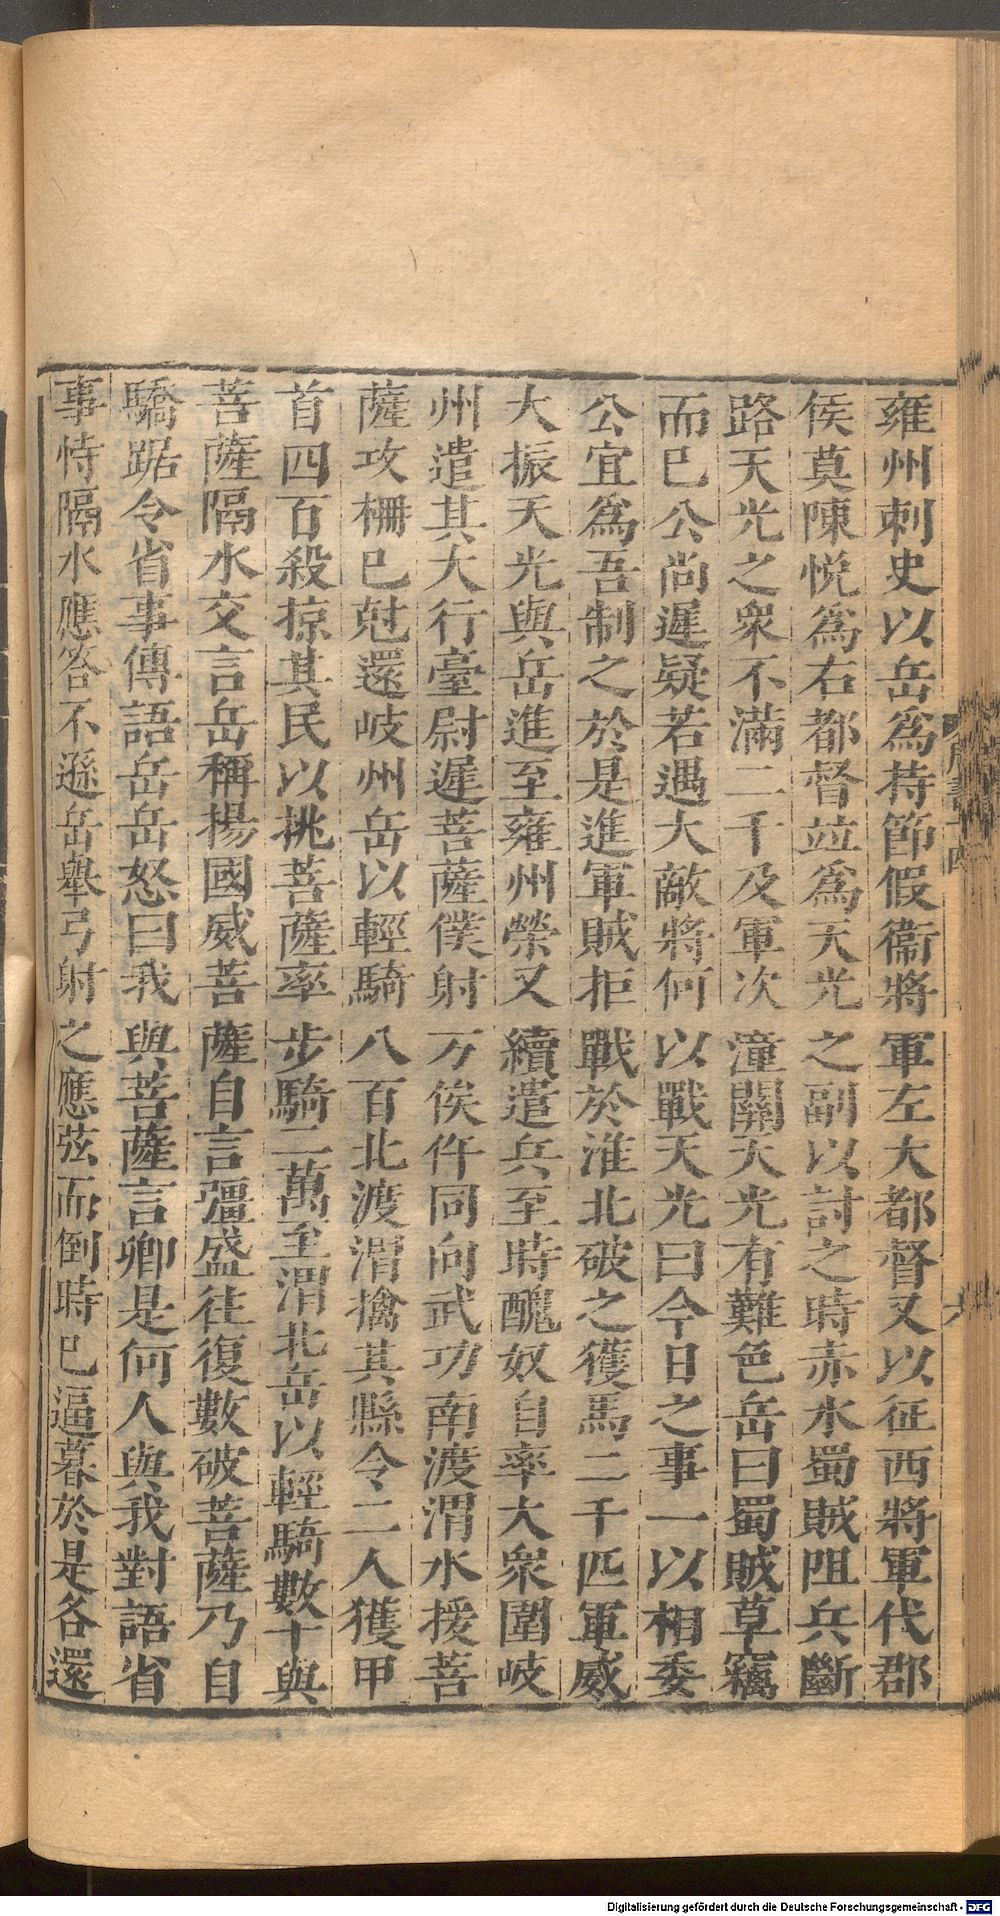 雍州刺史以岳爲持節假衞將軍左大都督又以征西將軍代郡
侯莫陳悅爲右都督竝爲天光之副以討之時赤水蜀賊阻兵斷
路天光之衆不滿二千及軍次潼關天光有難色岳曰蜀賊草竊
而已公尚遲疑若遇大敵將何以戰天光曰今日之事一以相委
公宜爲吾制之於是進軍賊拒戰於淮北破之獲馬二千匹軍威
大振天光與岳進至雍州榮又續遣兵至時醜奴自率大衆圍岐
州遣其大行臺尉遲菩薩僕射万俟仵同向武功南渡渭水援菩
薩攻柵已尅還岐州岳以輕騎八百北渡渭擒其縣令二人獲甲
首四百殺掠其民以挑菩薩率步騎二萬至渭北岳以輕騎數十與
菩薩隔水交言岳稱揚國威菩薩自言彊盛往復數破菩薩乃自
驕踞令省事傳語岳岳怒曰我與菩薩言卿是何人與我對語省
事恃隔水應答不遜岳舉弓射之應弦而倒時已逼暮於是各還
周書十四
六
Digitalisierung gefördert durch die Deutsche Forschungsgemeinschaft - DFG